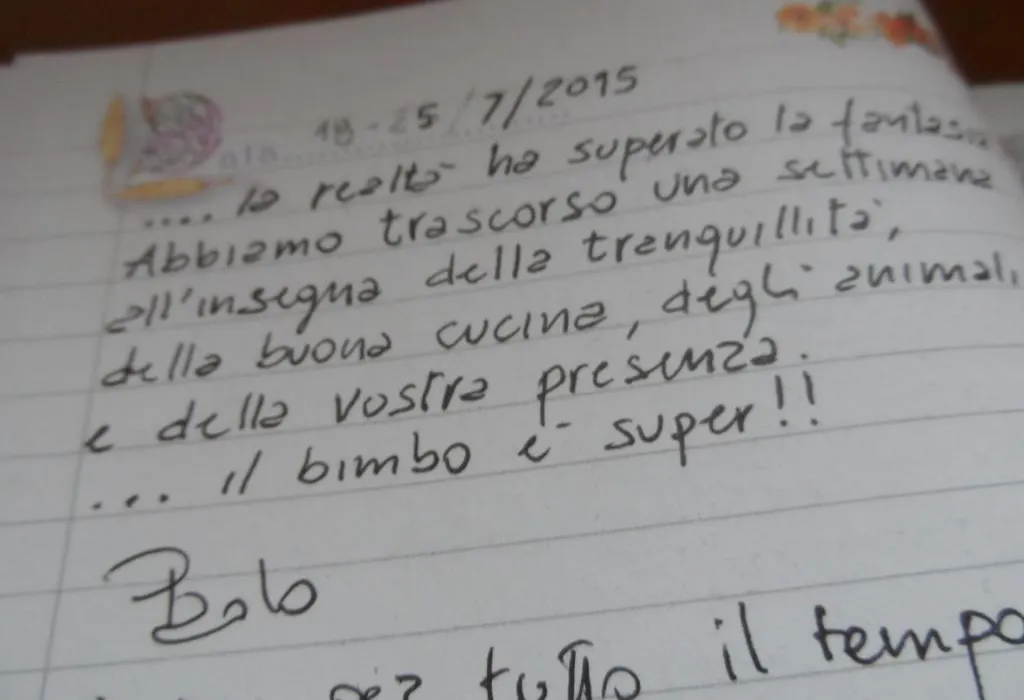 18-25/7/2015
.... la realtà ha superato la fantas
Abbiamo trascorso una settimana
all'insegna della tranquillità,
della buona cucina, degli animali
e della vostra presenza.
... il bimbo è super!!
tutto il tempo